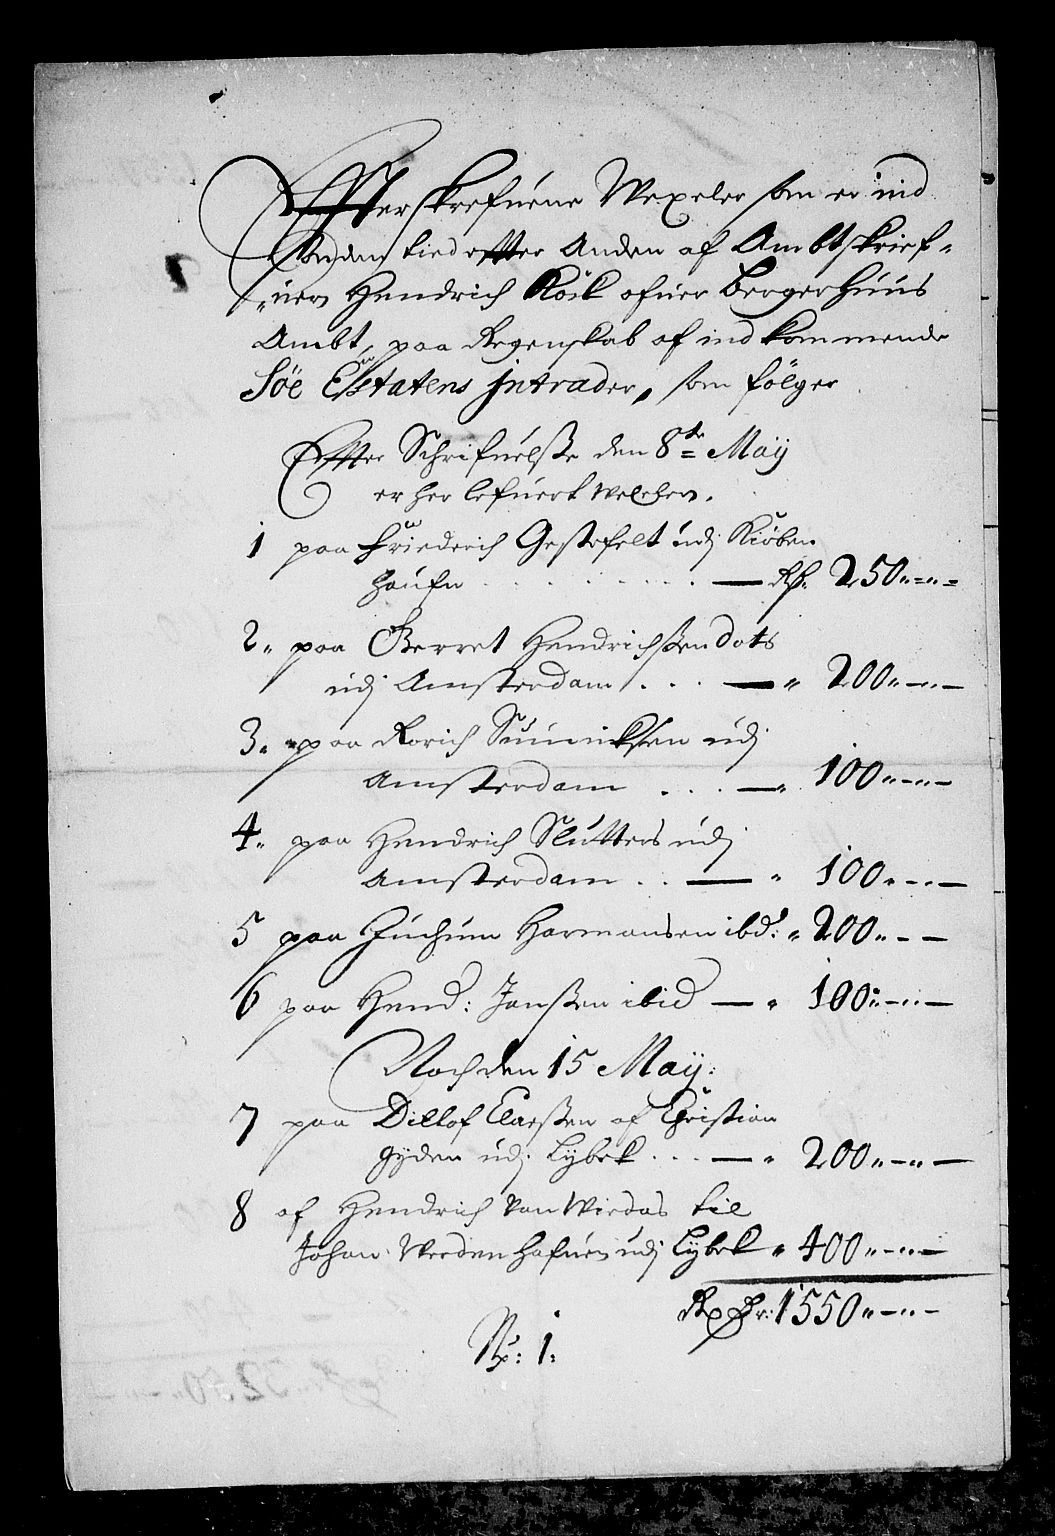 Effterskrefuene Wexeler som er ind
Sonden tied effter Anden af Ambtskrief-
uern Hendrich Röck ofuer Bergerhuus
Ambt, paa Regenskab af indkommende
Söe Estatens Intrader, som fölger
Effter Schrifuelsse den 8te May
er her lefuert Wexeler.
1 paa Friederich Gestefelt udj Kiöben
haufn . . . . . . — Rd. 250"-"-
2" paa Gerret Hendrichssen Dots
udj Amsterdam . . . — " 200"-"-
3" paa Rorich Sunnicksen udj
Amsterdam . . . — " 100"-"-
4" paa Hendrich Slutters udj
Amsterdam . . — " 100"-"-
5 paa Juchum Harmansen ibd: " 200"--
6 paa Hend: Janssen ibid — " 100"-"-
Noch den 15 May:
7 paa Ditlof Claessen af Christian
Gyden udj Lybek . . . — " 200"-"-
8 af Hendrich Van Wirdas til
Johan Verdenhafuen udj Lybek " 400"-"-
Rx dr: 1550"-"-
No: 1: